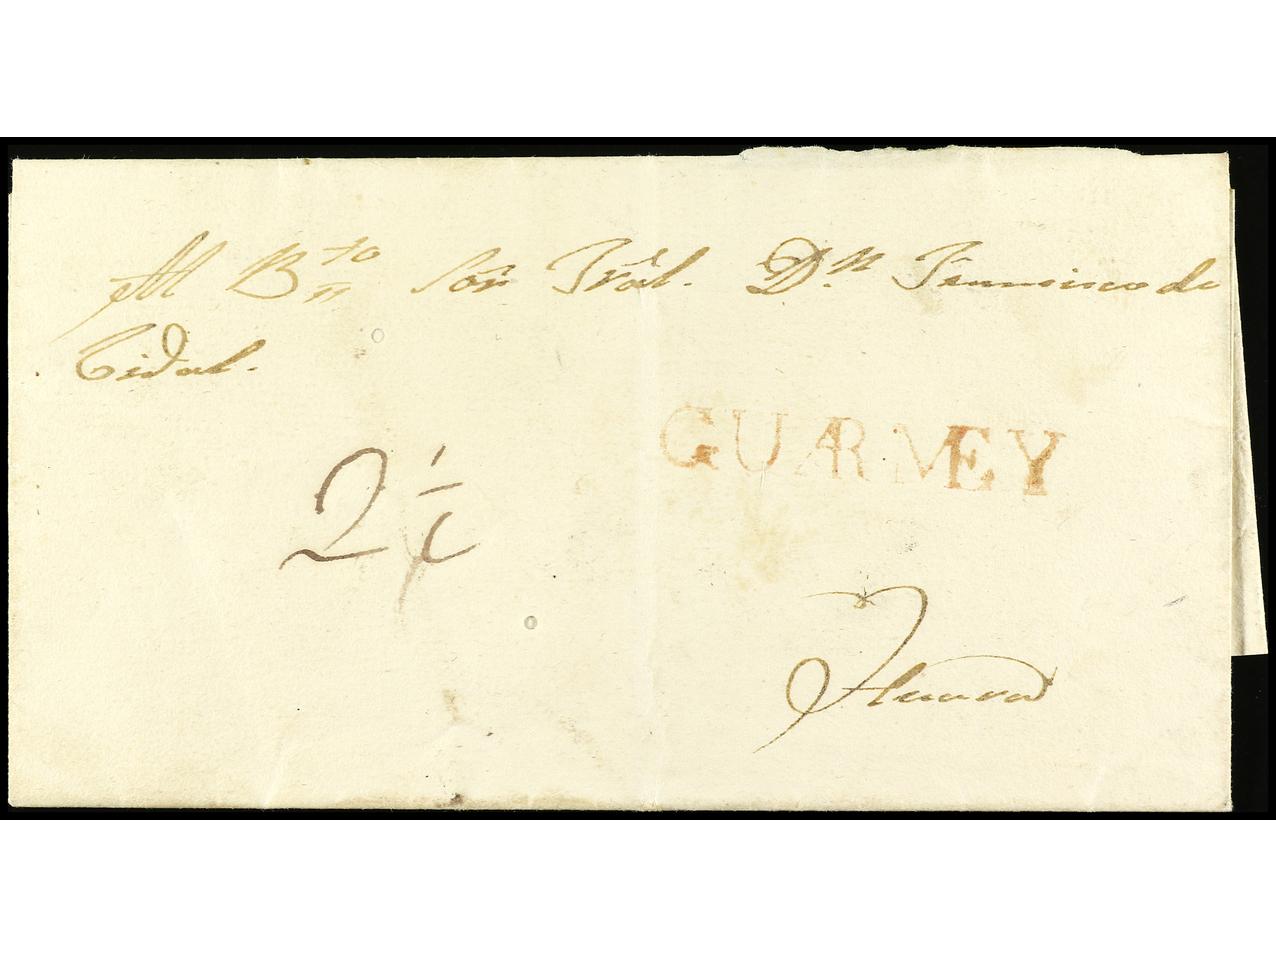 Al B.to Sõr. Grãl. D.n Francisco de
Vidal.
GUARMEY
2½
Huaura